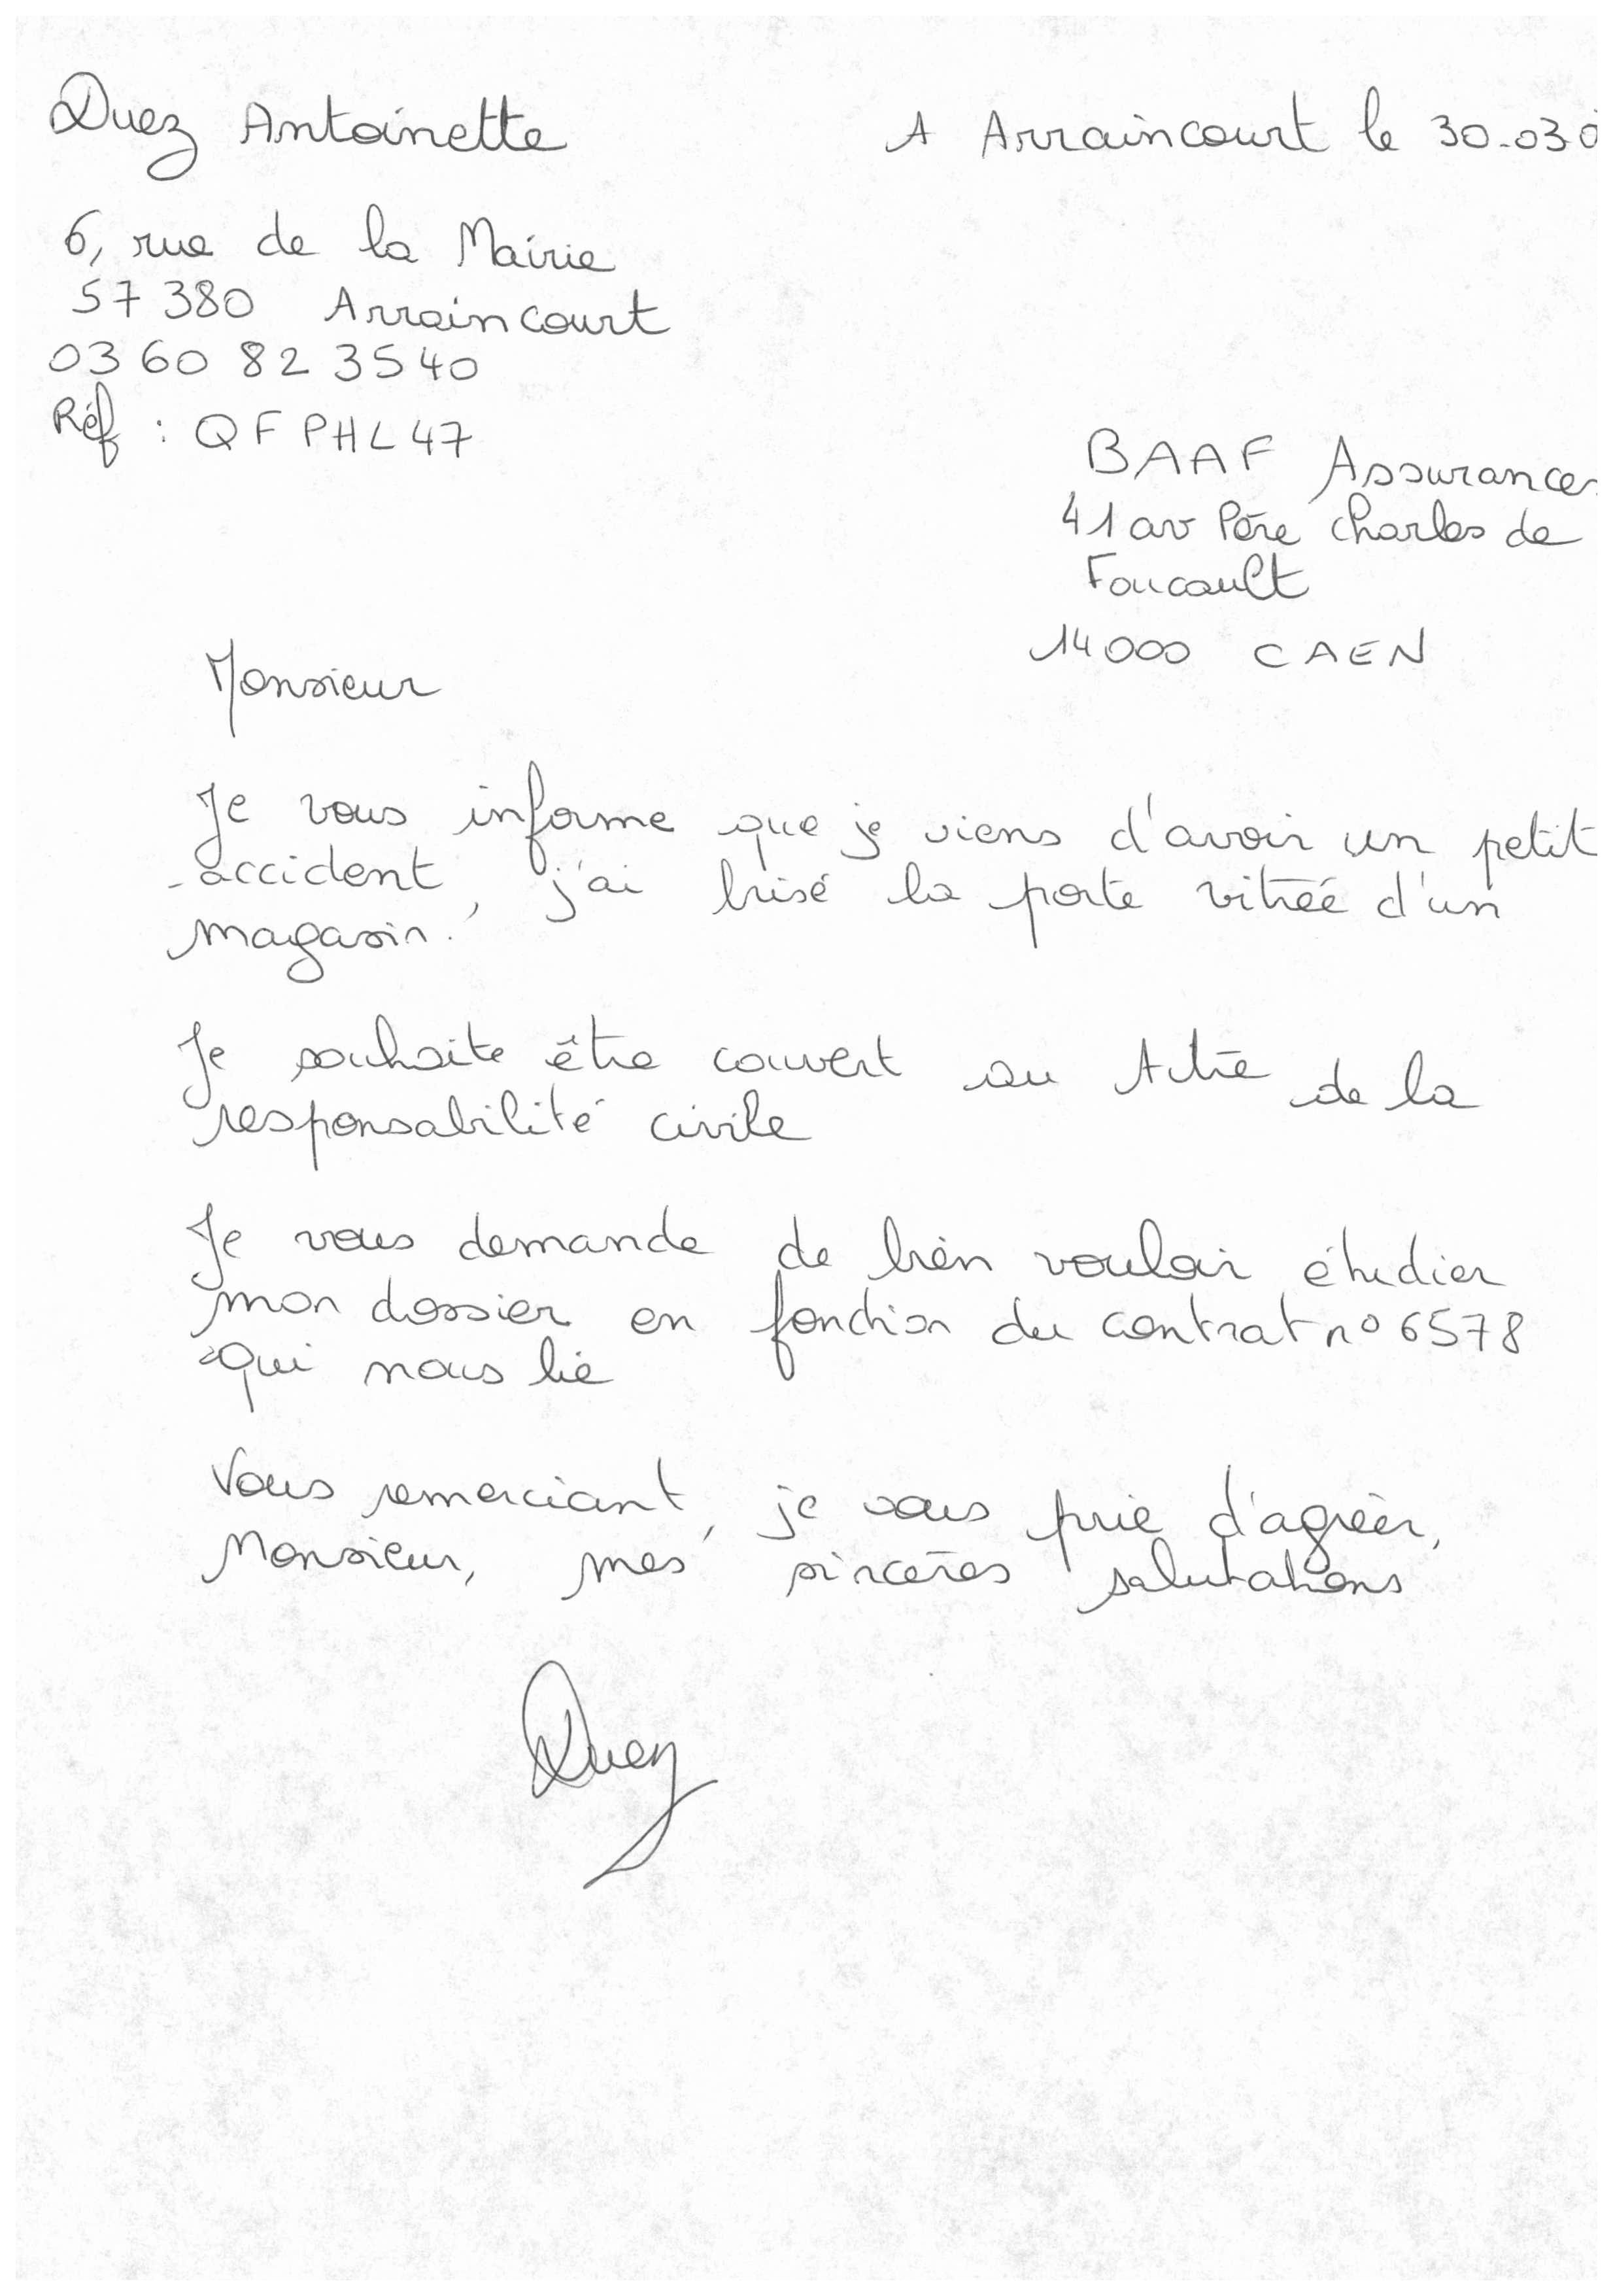 Duez Antoinette
A Arraincourt le 30.03.0
6, rue de la Mairie
57 380 Arraincourt
03 60 82 35 40
Réf : QFPHL47
BAAF Assurances
41 av Père Charles de
Foucault
14000 CAEN
Monsieur
Je vous informe que je viens d'avoir un petit
accident, j'ai brisé la porte vitrée d'un
magasin.
Je souhaite être couvert au titre de la
responsabilité civile
Je vous demande de bien vouloir étudier
mon dossier en fonction du contrat n° 6578
qui nous lie
Vous remerciant, je vous prie d'agréer,
Monsieur, mes sincères salutations
Duez